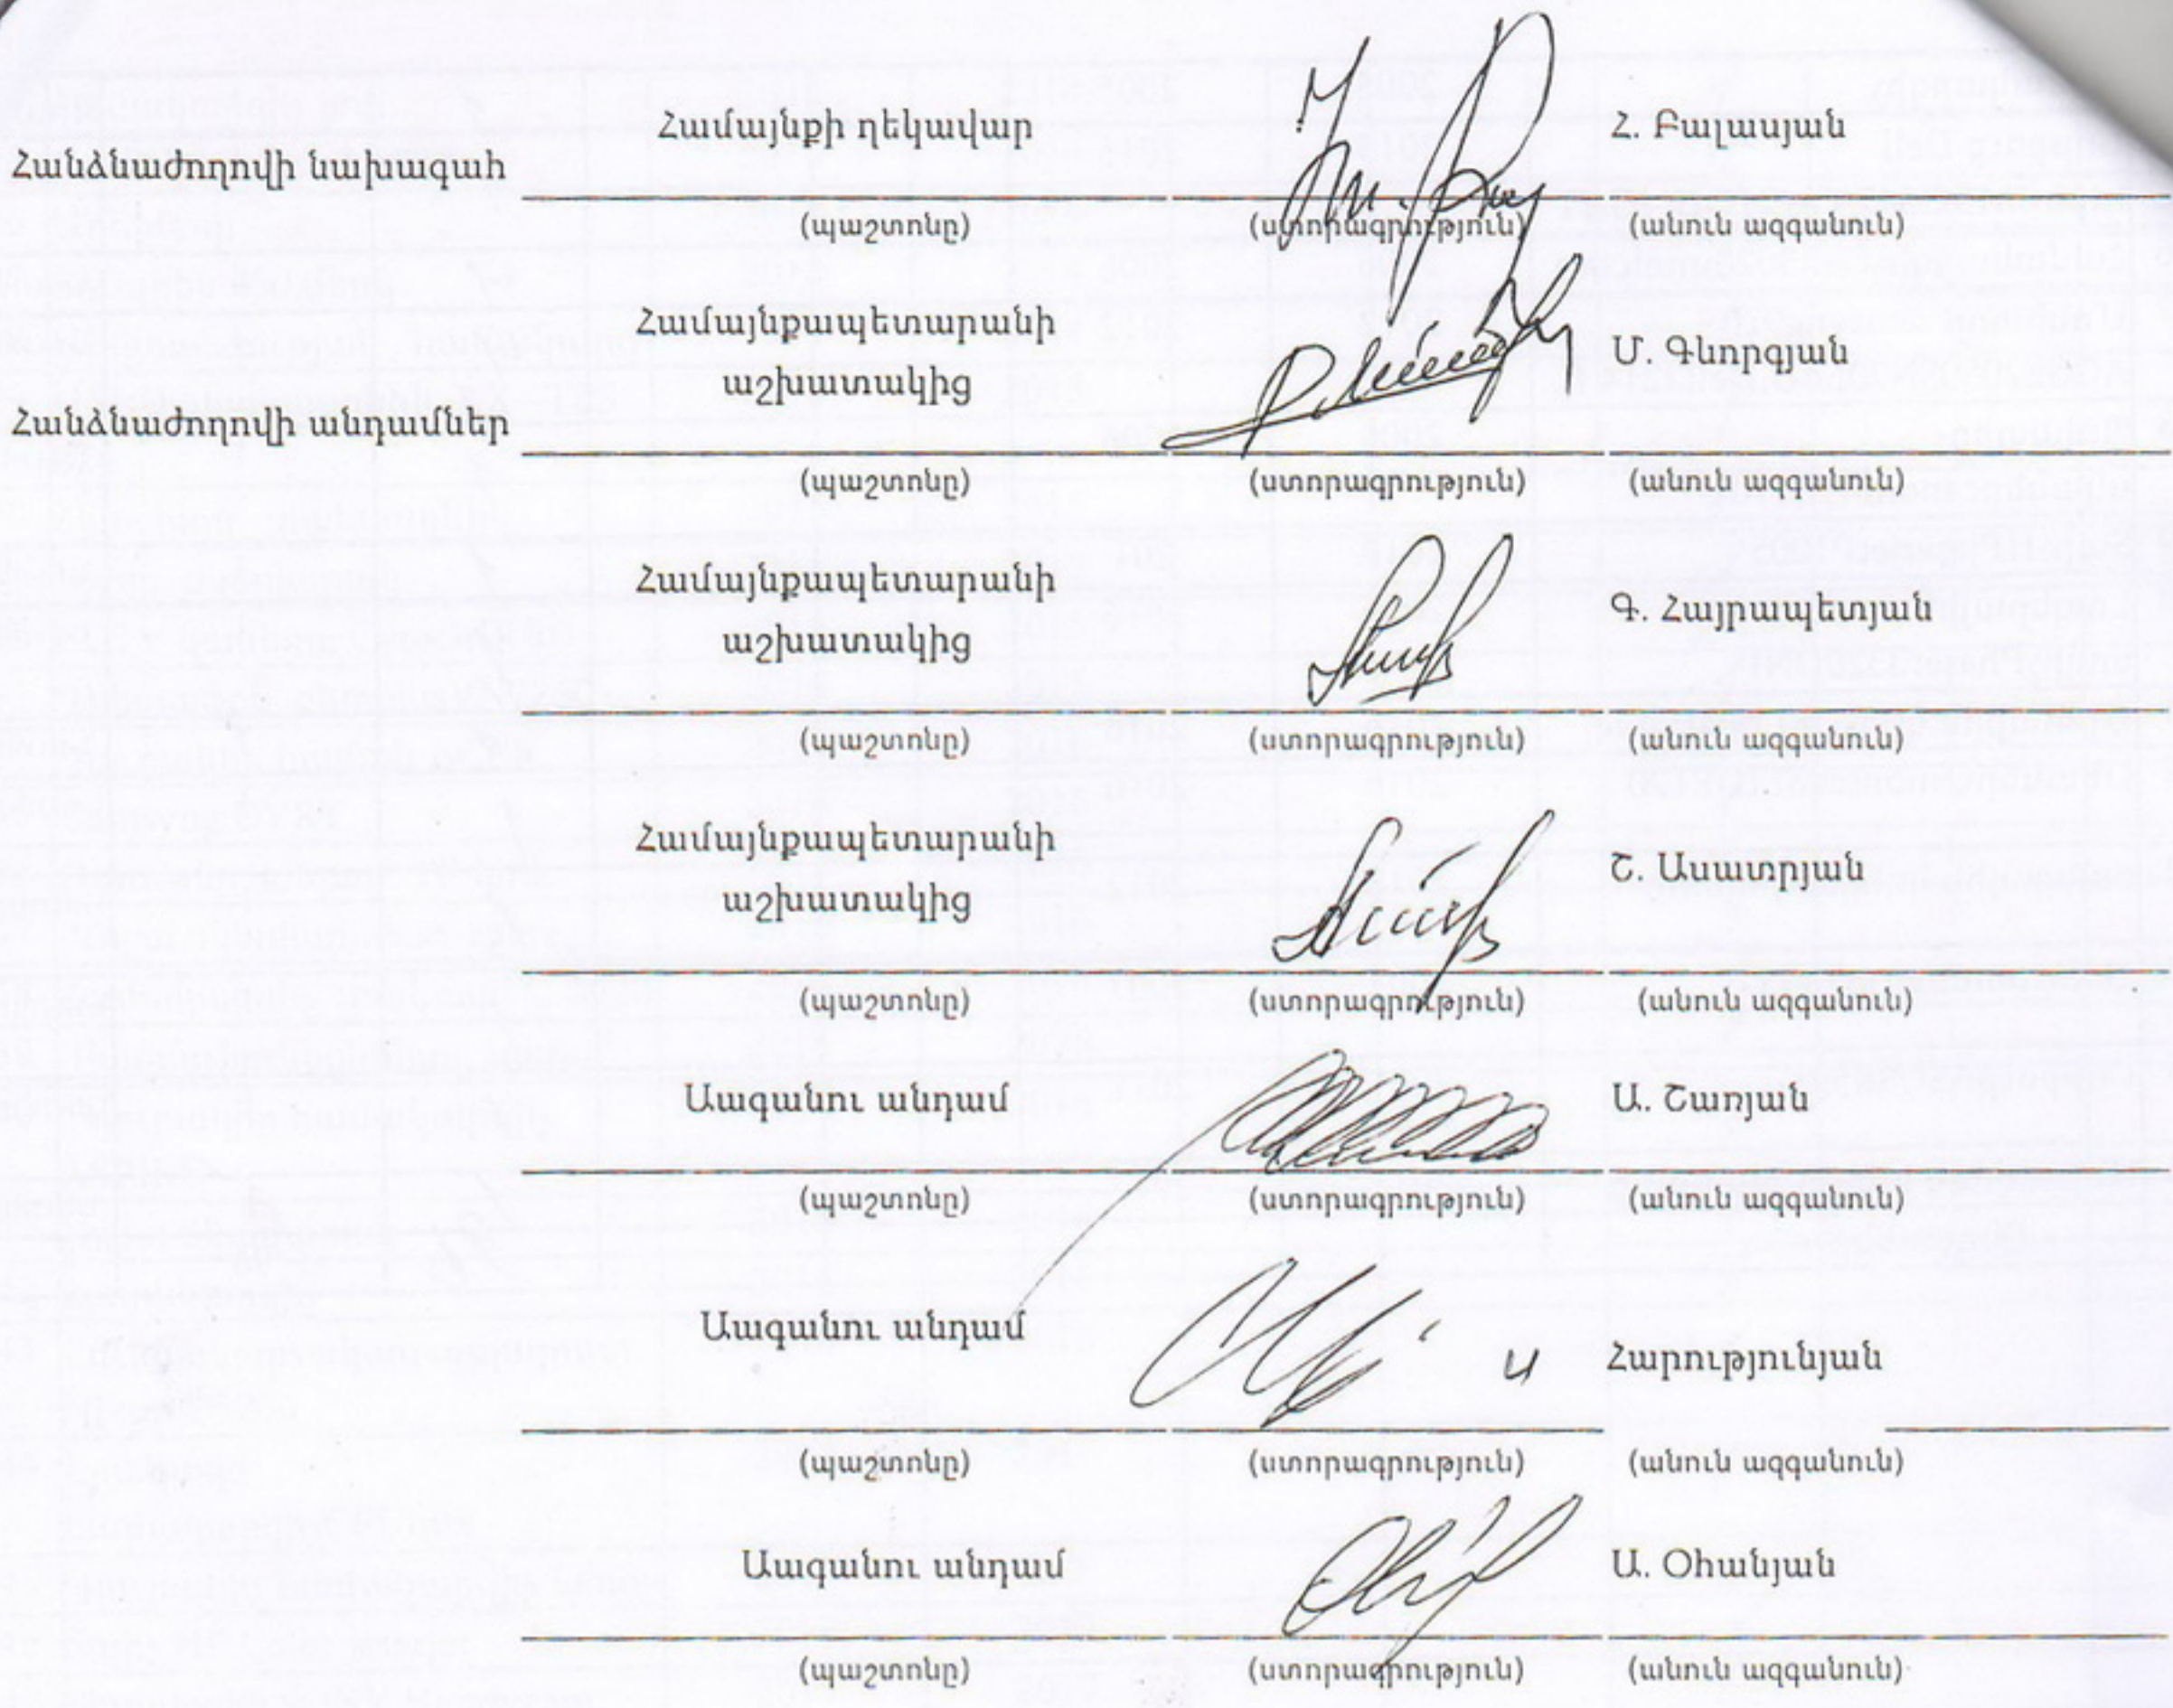 Համայնքի ղեկավար Հ. Բալասյան
Հանձնաժողովի նախագահ
(պաշտոնը) (ստորագրություն) (անուն ազգանուն)
Համայնքապետարանի
աշխատակից Մ. Գևորգյան
Հանձնաժողովի անդամներ
(պաշտոնը) (ստորագրություն) (անուն ազգանուն)
Համայնքապետարանի
աշխատակից Գ. Հայրապետյան
(պաշտոնը) (ստորագրություն) (անուն ազգանուն)
Համայնքապետարանի
աշխատակից Շ. Ասատրյան
(պաշտոնը) (ստորագրություն) (անուն ազգանուն)
Ապագանու անդամ Ա. Շառյան
(պաշտոնը) (ստորագրություն) (անուն ազգանուն)
Ապագանու անդամ Հարությունյան
(պաշտոնը) (ստորագրություն) (անուն ազգանուն)
Ապագանու անդամ Ա. Օհանյան
(պաշտոնը) (ստորագրություն) (անուն ազգանուն)